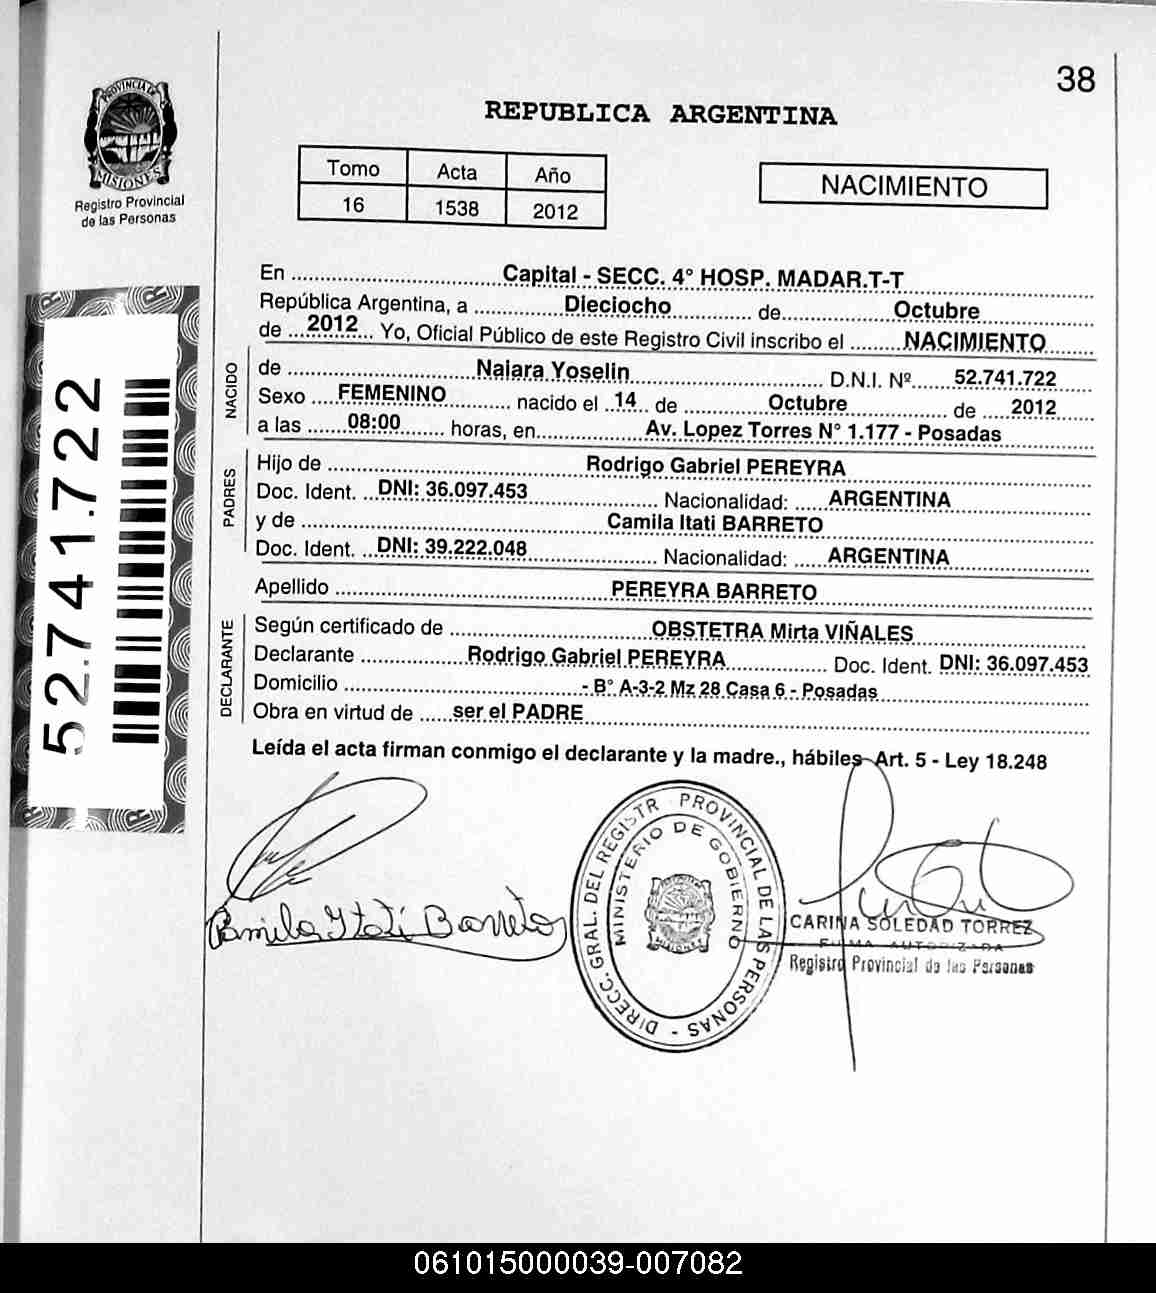 38
PROVINCIA DE
MISIONES
Registro Provincial
de las Personas
REPUBLICA ARGENTINA
Tomo Acta Año
16 1538 2012
NACIMIENTO
52.741.722
En ........ Capital - SECC. 4° HOSP. MADAR.T-T
República Argentina, a ........ Dieciocho ........ de ........ Octubre
de ... 2012 ... Yo, Oficial Público de este Registro Civil inscribo el ........ NACIMIENTO
NACIDO
de ........ Naiara Yoselin ........ D.N.I. Nº ...... 52.741.722
Sexo .... FEMENINO ........ nacido el .. 14 .. de ........ Octubre ........ de .... 2012
a las ...... 08:00 ...... horas, en ........ Av. Lopez Torres N° 1.177 - Posadas
PADRES
Hijo de ........ Rodrigo Gabriel PEREYRA
Doc. Ident. ... DNI: 36.097.453 ........ Nacionalidad: ...... ARGENTINA
y de ........ Camila Itati BARRETO
Doc. Ident. ... DNI: 39.222.048 ........ Nacionalidad: ...... ARGENTINA
Apellido ........ PEREYRA BARRETO
DECLARANTE
Según certificado de ........ OBSTETRA Mirta VIÑALES
Declarante ........ Rodrigo Gabriel PEREYRA ........ Doc. Ident. DNI: 36.097.453
Domicilio ........ - B° A-3-2 Mz 28 Casa 6 - Posadas
Obra en virtud de ..... ser el PADRE
Leída el acta firman conmigo el declarante y la madre., hábiles- Art. 5 - Ley 18.248
Camila Itati Barreto
DIRECC. GRAL. DEL REGISTR PROVINCIAL DE LAS PERSONAS -
MINISTERIO DE GOBIERNO
MISIONES
CARINA SOLEDAD TORREZ
FIRMA AUTORIZADA
Registro Provincial de las Personas
061015000039-007082